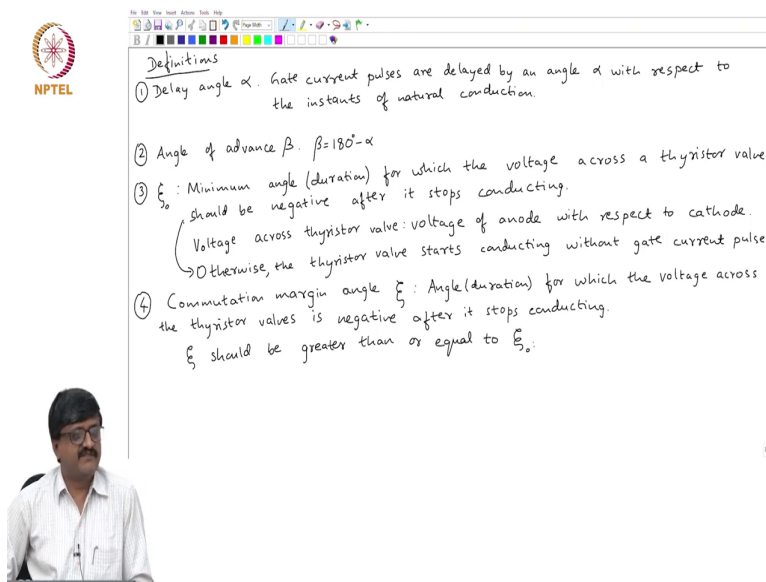 File Edit View Insert Actions Tools Help
Page Width
B I
NPTEL
Definitions
① Delay angle α. Gate current pulses are delayed by an angle α with respect to
the instants of natural conduction.
② Angle of advance β. β=180°-α
③ ξ₀ : Minimum angle (duration) for which the voltage across a thyristor valve
should be negative after it stops conducting.
Voltage across thyristor valve: voltage of anode with respect to cathode.
→ Otherwise, the thyristor valve starts conducting without gate current pulse
④ Commutation margin angle ξ : Angle (duration) for which the voltage across
the thyristor valves is negative after it stops conducting.
ξ should be greater than or equal to ξ₀.